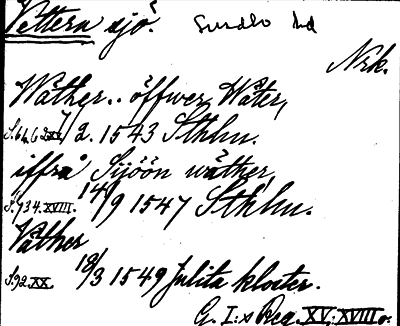 Vettern sjö. Sundbo hd
Nrk.
Wäther.. öffwer Wäter,
S. 64, 62 XV 7/2. 1543 Sthlm.
iffrå Sijöön wäther,
S. 734. XVIII. 14/9 1547 Sthlm.
Väther
S. 92. XX. 18/3 1549 Julita kloster.
G. I:s Reg. XV; XVIII o.